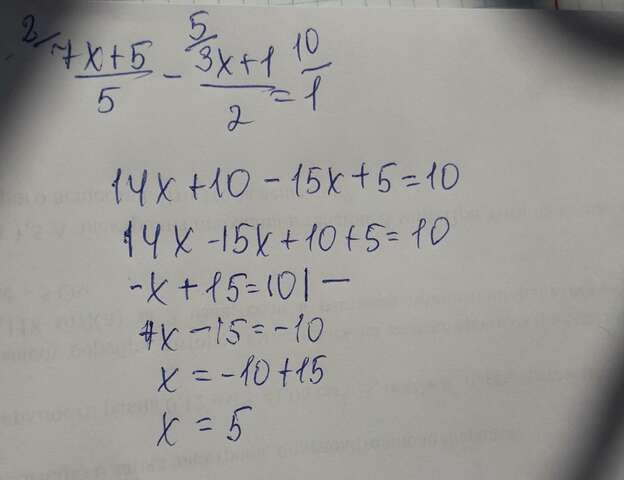 2/ 7x+5/5 - 5/ 3x+1/2 = 10/1
14x+10-15x+5=10
14x-15x+10+5=10
-x+15=10|-
x-15=-10
x=-10+15
x=5